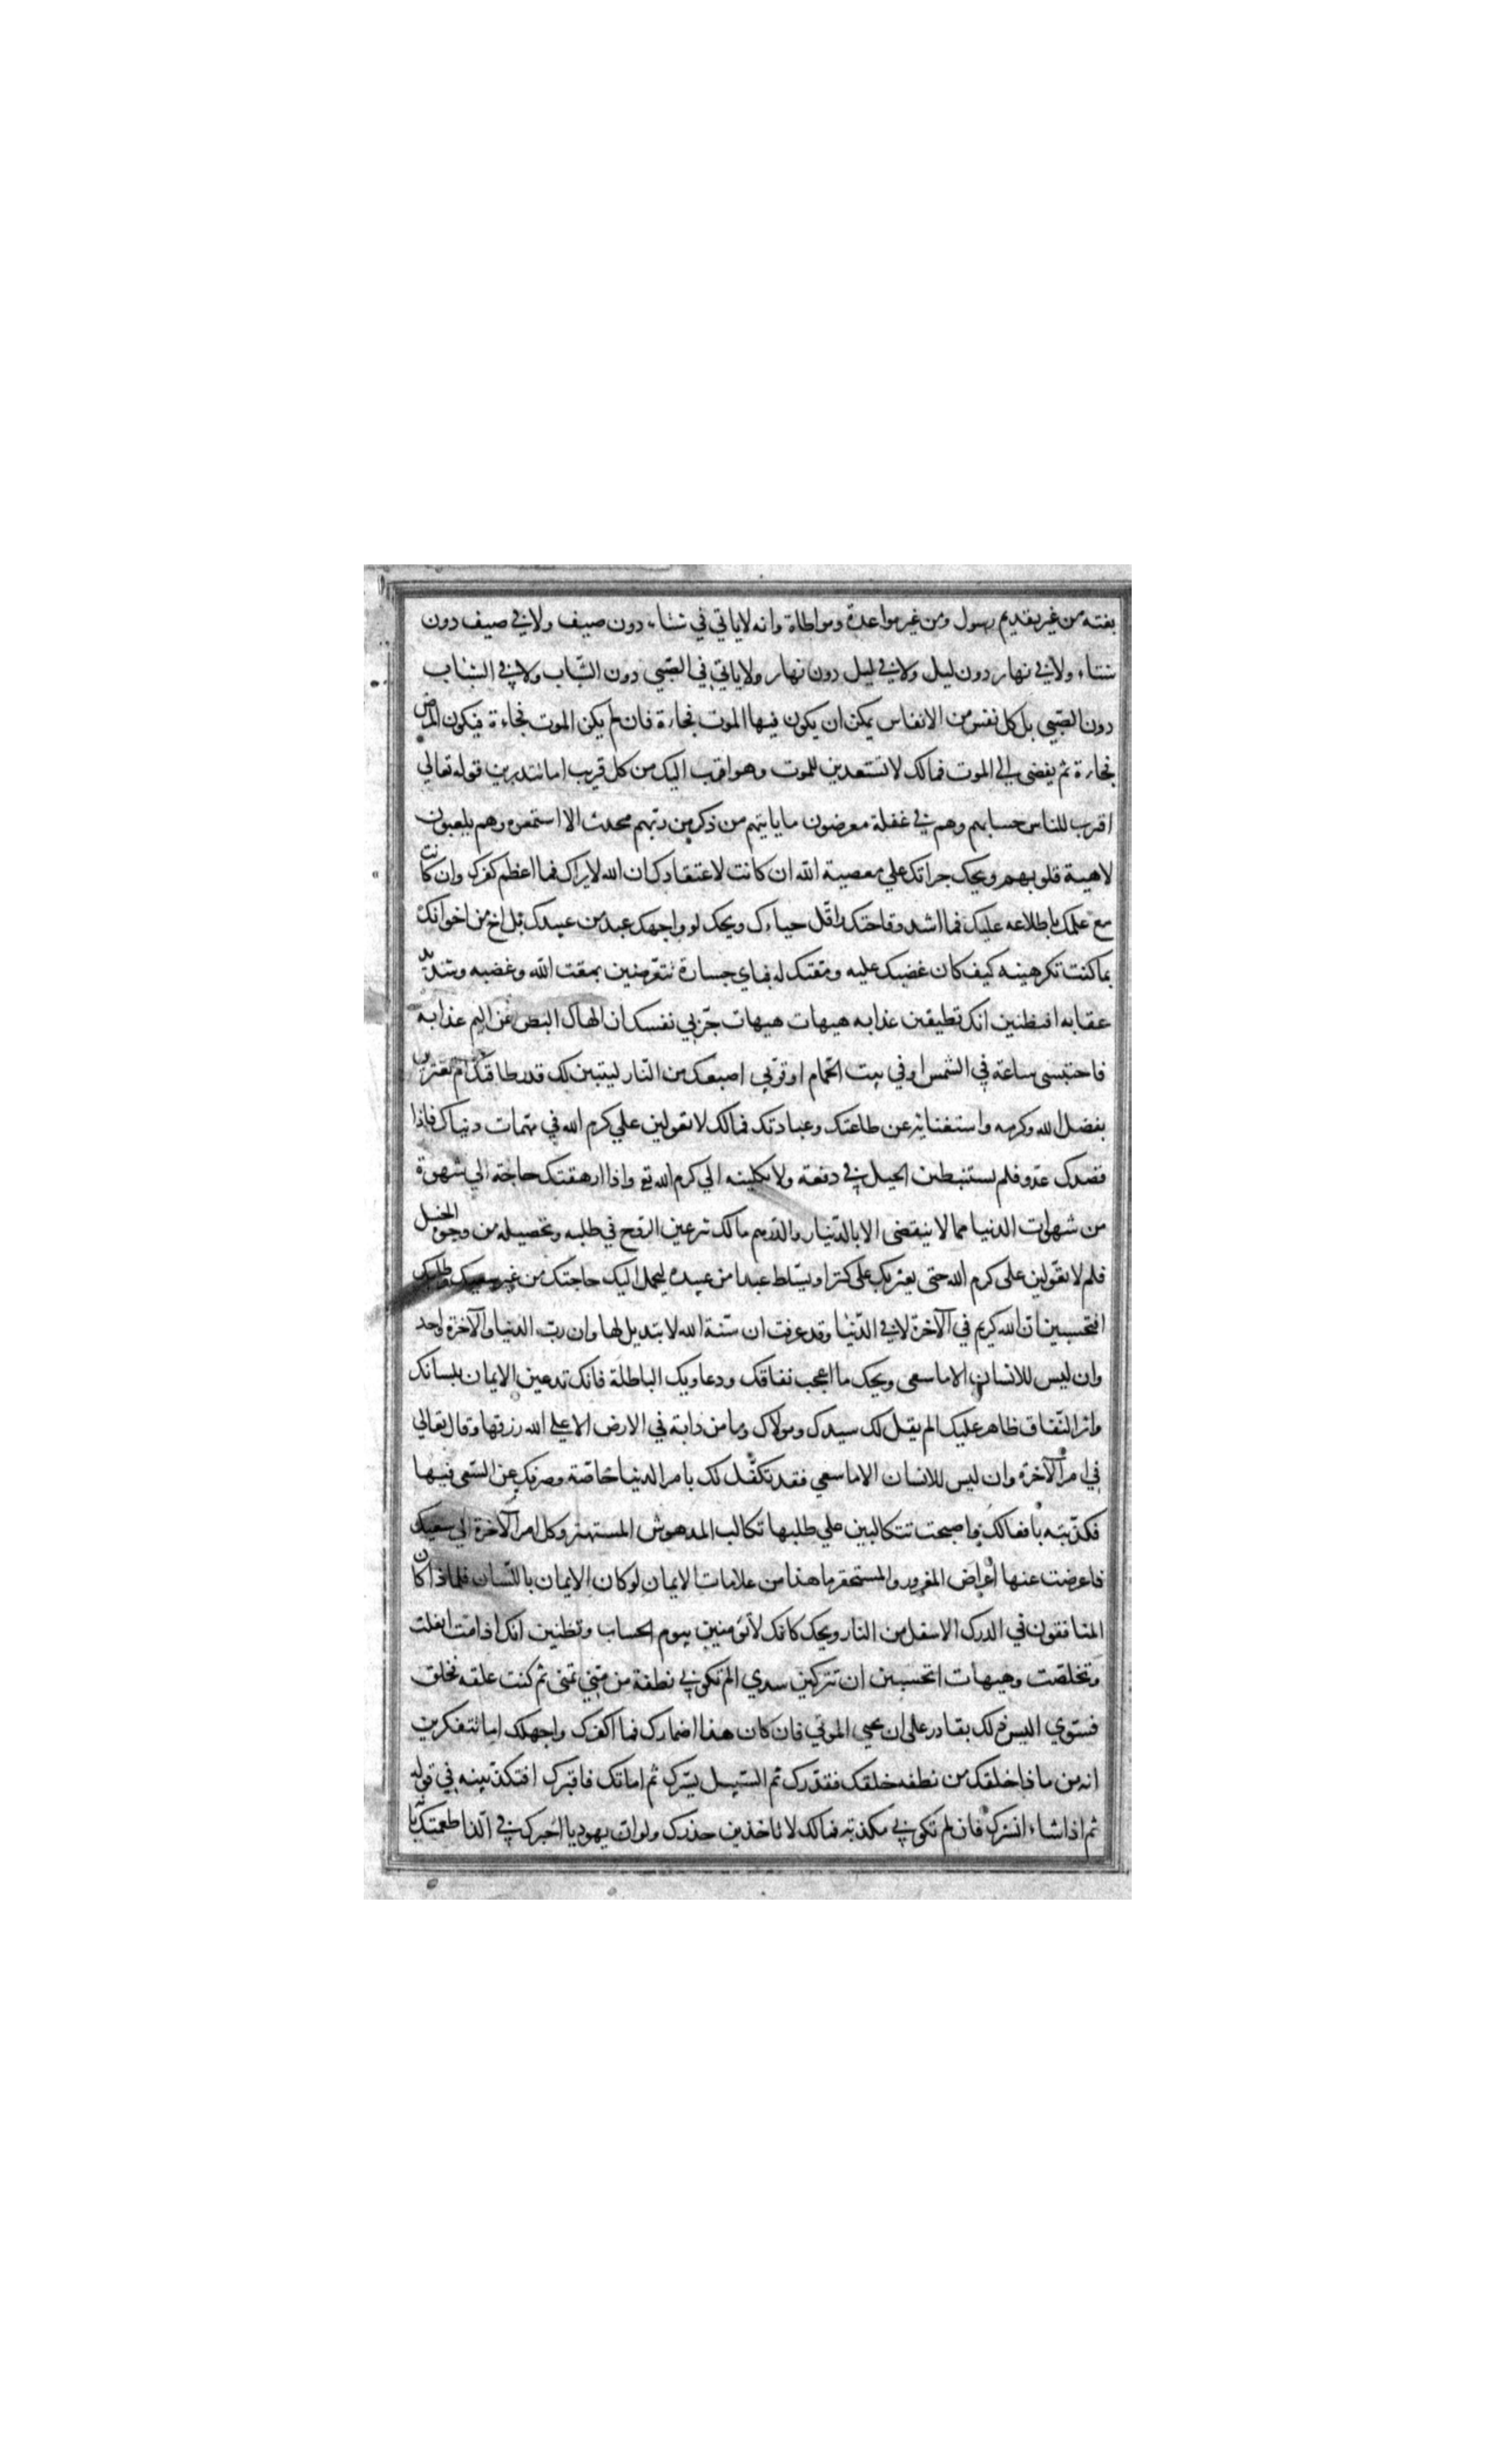 بغتة من غير تقديم رسول ومن غير مواعدة ومواطاة وانه لا ياتي في شتاء دون صيف ولا في صيف دون
شتاء ولا في نهار دون ليل ولا في ليل دون نهار ولا ياتي في الصبي دون الشباب ولا في الشباب
دون الصبي بل كل نفس من الانفاس يمكن ان يكون فيها الموت فجاءة فان لم يكن الموت فجاءة فيكون المرض
فجاءة ثم يفضى الى الموت فمالك لا تستعدين للموت وهو اقرب اليك من كل قريب اما تتدبرين قوله تعالي
اقرب للناس حسابهم وهم في غفلة معرضون ما ياتيهم من ذكر من ربهم محدث الا استمعوه وهم يلعبون
لاهية قلوبهم ويحك جراتك علي معصية الله ان كانت لاعتقادك ان الله لا يراك فما اعظم كفرك وان كانت
مع علمك باطلاعه عليك فما اشد وقاحتك واقل حياءك ويحك لو واجهك عبد من عبيدك بل اخ من اخوانك
بما كنت تكرهينه كيف كان غضبك عليه ومقتك له فباي جسارة تتعرضين بمقت الله وغضبه وشديد
عقابه افتظنين انك تطيقين عذابه هيهات هيهات جربي نفسك ان الهاك البطر عن اليم عذابه
فاحتبسى ساعة في الشمس او في بيت الحمام او قربي اصبعك من النار ليتبين لك قدر طاقتك ام تغترين
بفضل الله وكرمه واستغنائه عن طاعتك وعبادتك فمالك لا تعولين علي كرم الله في مهمات دنياك فاذا
قصدك عدو فلم تستنبطين الحيل في دفعه ولا تكلينه الي كرم الله تع واذا ارهقتك حاجة الي شهوة
من شهوات الدنيا مما لا ينقضى الا بالدينار والدرهم مالك تنزعين الروح في طلبه وتحصيله من وجوه الحيل
فلم لا تعولين على كرم الله حتى يعثر بك على كنز او يسلط عبدا من عبيده ليحمل اليك حاجتك من غير سعيك وطلبك
افتحسبين ان الله كريم في الآخرة لا في الدنيا وقد عرفت ان سنة الله لا تبديل لها وان رب الدنيا والآخرة واحد
وان ليس للانسان الا ما سعى ويحك ما اعجب نفاقك ودعاويك الباطلة فانك تدعين الايمان بلسانك
واثر النفاق ظاهر عليك الم يقل لك سيدك ومولاك وما من دابة في الارض الا علي الله رزقها وقال تعالي
في امر الآخرة وان ليس للانسان الا ما سعي فقد تكفل لك بامر الدنيا خاصة وصرفك عن السعي فيها
فكذبته بافعالك واصبحت تتكالبين علي طلبها تكالب المدهوش المستهتر وكل امر الآخرة الي سعيك
فاعرضت عنها اعراض المغرور والمستحقر ما هذا من علامات الايمان لو كان الايمان باللسان فلماذا كان
المنافقون في الدرك الاسفل من النار ويحك كانك لا تومنين بيوم الحساب وتظنين انك اذا مت انفلت
وتخلصت وهيهات اتحسبين ان تتركين سدي الم تكوني نطفة من مني تمنى ثم كنت علقه فخلق
فستوي اليس ذلك بقادر على ان يحيى الموتي فان كان هذا اضمارك فما اكفرك واجهلك اما تتفكرين
انه من ماذا خلقك من نطفه خلقك فقدرك ثم السبيل يسرك ثم اماتك فاقبرك افتكذبينه في قوله
ثم اذا شاء انشرك فان لم تكوني مكذبة فمالك لا تاخذين حذرك ولو ان يهوديا اخبرك في الذ اطعمتك